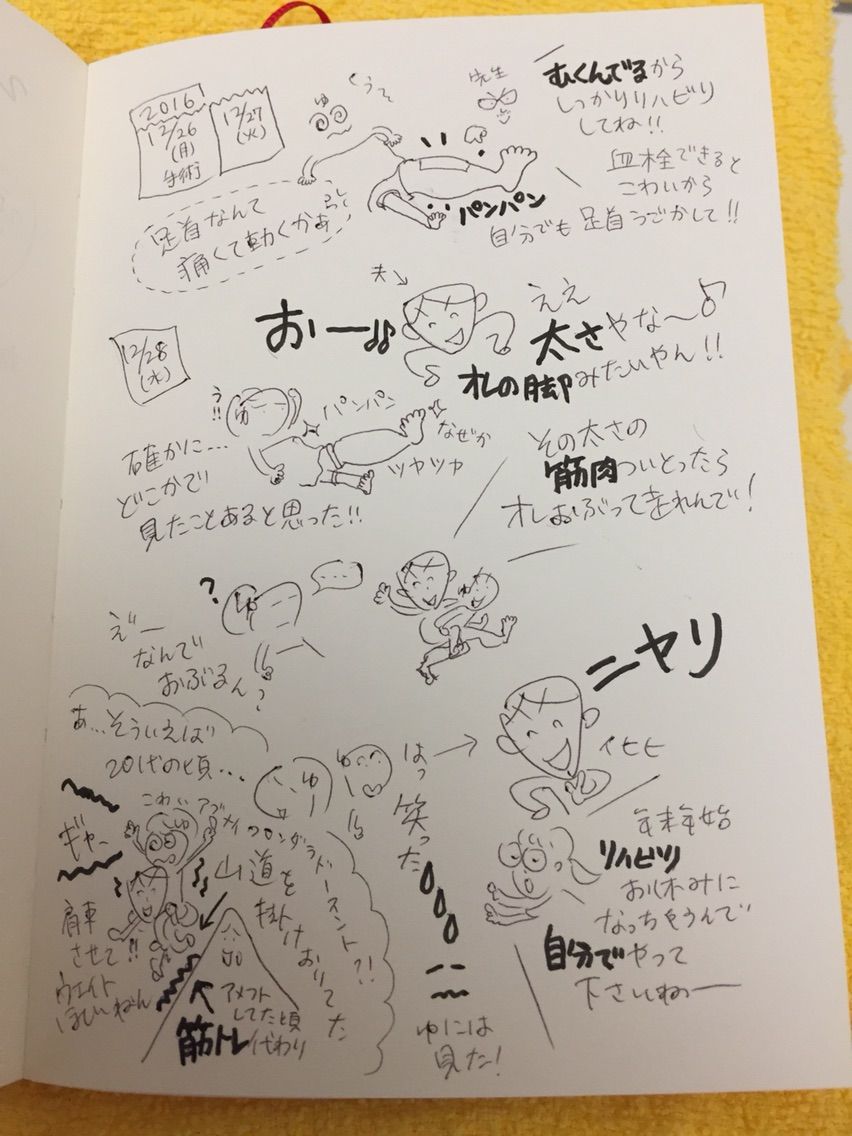 2016
12/26
(月)
手術
12/27
(火)
ゆ
先生
むくんでるから
しっかりリハビリ
してね!!
血栓できると
こわいから
自分でも足首うごかして!!
パンパン
足首なんて
痛くて動くかぁ
夫
12/28
(水)
おー
ええ
太さやな〜♪
オレの脚みたいやん!!
う!!
ゆ
パンパン
なぜか
ツヤツヤ
確かに…
どこかで
見たことあると思った!!
その太さの
筋肉ついとったら
オレおぶって走れんで!
?
ゆ
えー
なんで
おぶるん?
ニヤリ
イヒヒ
あ…そういえば
20代の頃…
ゆ
ゆ
はっ 笑った
こわい アブナイ
ギャー
山道を
掛けおりてた
肩車
させて!!
ウエイト
ほしいねん
アメフト
してた頃
筋トレ代わり
ゆには
見た!
年末年始
リハビリ
お休みに
なっちゃうんで
自分でやって
下さいねー